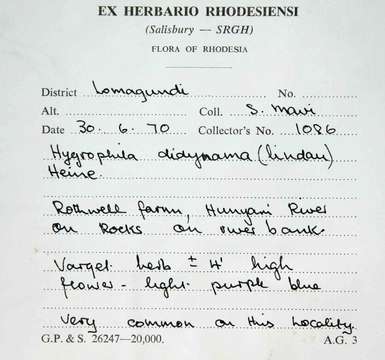 EX HERBARIO RHODESIENSI
(Salisbury — SRGH)
FLORA OF RHODESIA
District Lomagundi No.
Alt. Coll. S. Mavi
Date 30. 6. 70 Collector's No. 1086
Hygrophila didynama (lindau)
Heine.
Rothwell farm, Hunyani River
on Rocks on river bank.
herb ± 4' high
flower - light purple blue
very common on this locality.
G.P. & S. 26247—20,000. A.G. 3